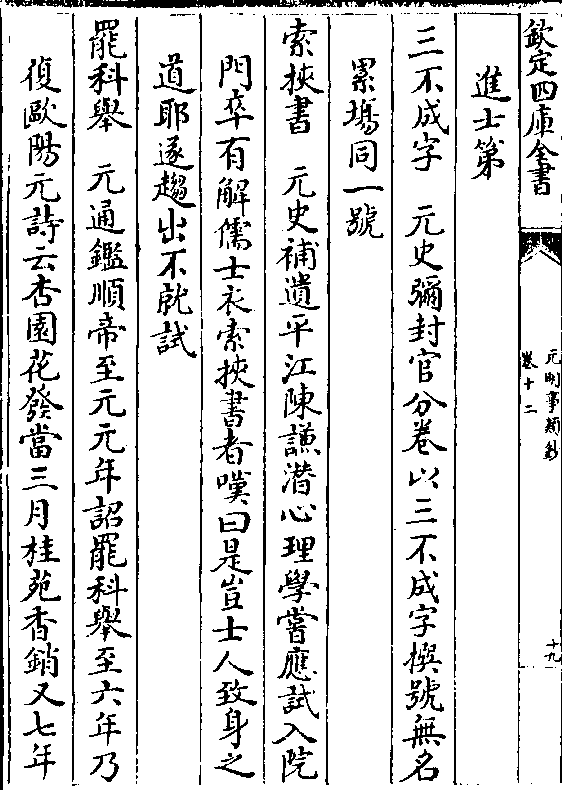 欽定四庫全書
元明事類鈔
卷十二
十九
進士第
三不成字　元史彌封官分卷以三不成字撰號無名
累場同一號
索挾書　元史補遺平江陳謙潛心理學嘗應試入院
門卒有解儒士衣索挾書者嘆曰是豈士人致身之
道耶遂趨出不就試
罷科舉　元通鑑順帝至元元年詔罷科舉至六年乃
復歐陽元詩云杏園花發當三月桂苑香銷又七年